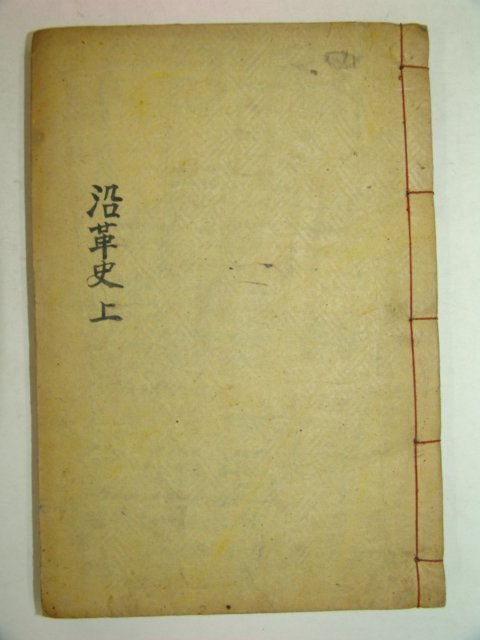 沿革史 上